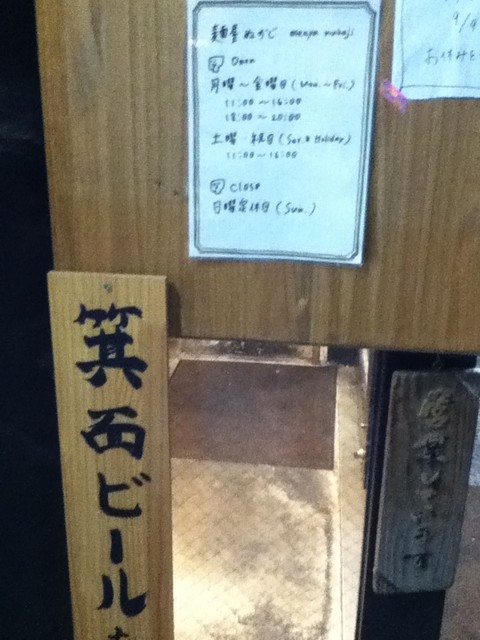 麺屋 ぬかじ menya nukaji
Open
月曜～金曜日(Mon.～Fri.)
11:00～16:00
18:00～20:00
土曜・祝日(Sat.& Holiday)
11:00～16:00
Close
日曜定休日(Sun.)
9/9
お休みを
箕面ビール
営業しております